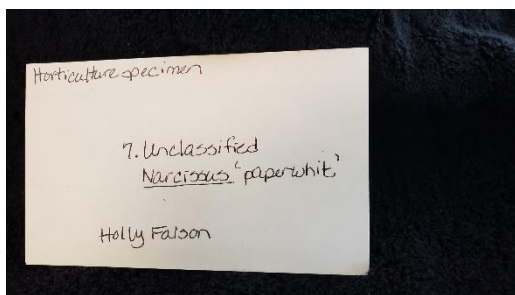 Horticulture specimen
7. Unclassified
Narcissus 'paperwhit'
Holly Faison